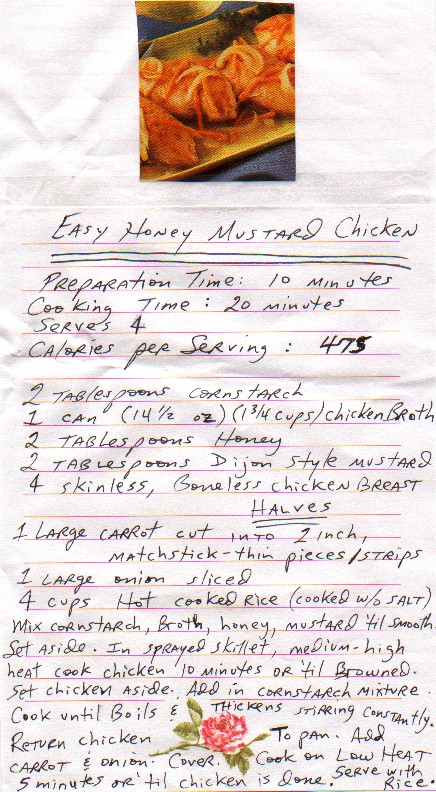 Easy Honey Mustard Chicken
Preparation Time: 10 minutes
Cooking Time: 20 minutes
Serves 4
Calories per Serving: 475
2 Tablespoons cornstarch
1 can (14 1/2 oz) (1 3/4 cups) chicken Broth
2 Tablespoons Honey
2 Tablespoons Dijon style mustard
4 skinless, Boneless chicken Breast
Halves
1 Large carrot cut into 2 inch,
matchstick-thin pieces/strips
1 Large onion sliced
4 cups Hot cooked Rice (cooked w/o salt)
Mix cornstarch, Broth, honey, mustard 'til smooth.
Set aside. In sprayed skillet, medium-high
heat cook chicken 10 minutes or 'til Browned.
Set chicken aside. Add in cornstarch mixture.
Cook until Boils & Thickens stirring constantly.
Return chicken To pan. Add
carrot & onion. Cover. Cook on Low Heat
5 minutes or 'til chicken is done. Serve with
Rice.